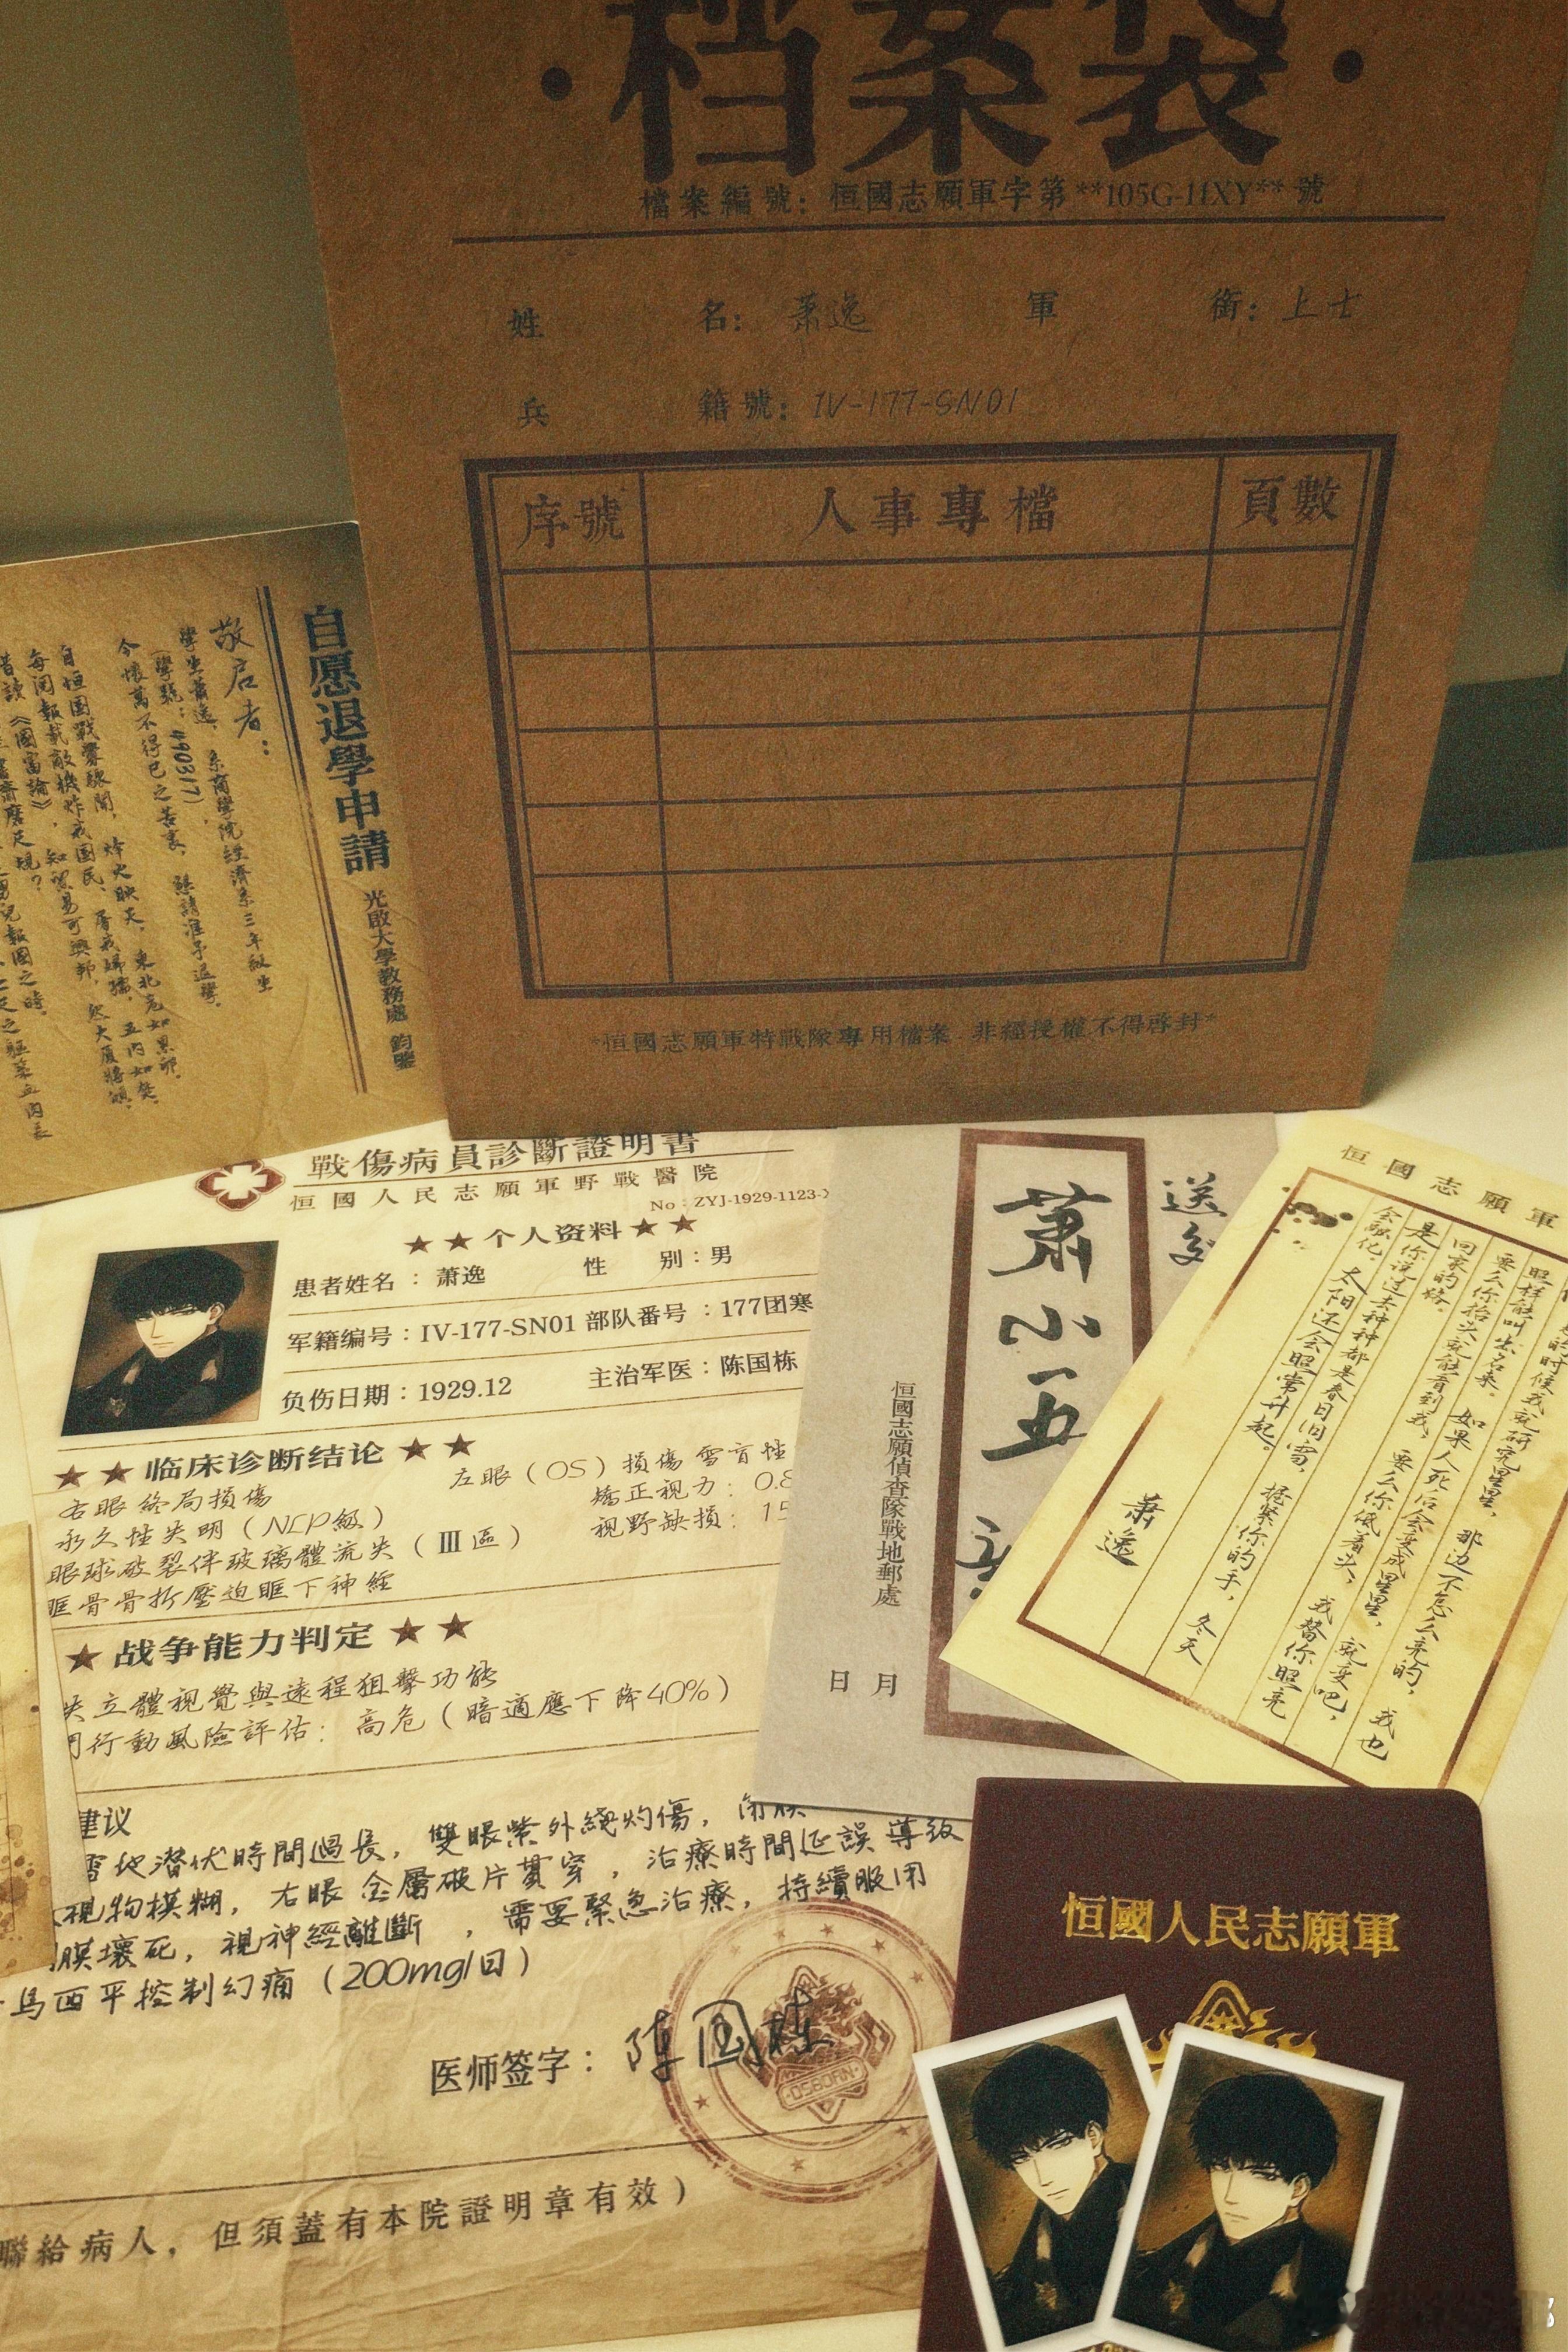 ·档案袋·
檔案編號：恒國志願軍字第**105G-11XY**號
姓名：萧逸 軍銜：上士
兵籍號：IV-177-SN01
序號 人事專檔 頁數
*恒國志願軍特戰隊專用檔案 非經授權不得啓封*
自愿退學申請
光啟大學教務處 鈞鑒
敬启者：
學生萧逸，系商學院經濟系三年級生
(學號：490317)，
今懷萬不得已之苦衷，懇請准予退學。
自恒国戰釁驟開，烽火映天，東北危如累卵，
每閱報載敵機炸我國民，屠我婦孺，五内如焚。
昔讀《國富論》，知貿易可興邦，然大厦將傾，
戰傷病員診斷證明書
恒國人民志願軍野戰醫院
No：ZYJ-1929-1123-
★★个人资料★★
患者姓名：萧逸 性别：男
军籍编号：IV-177-SN01 部队番号：177团寒
负伤日期：1929.12 主治军医：陈国栋
★★临床诊断结论★★
右眼終局損傷
永久性失明（NLP級）
眼球破裂伴玻璃體流失（Ⅲ區）
眶骨骨折壓迫眶下神經
左眼（OS）損傷 雪盲性
矯正視力：0.8
視野缺損：15
★战争能力判定★★
失立體視覺與遠程狙擊功能
行動風險評估：高危（暗適應下降40%）
建议
雪地潜伏時間過長，雙眼紫外綫灼傷，角膜
視物模糊，右眼金屬破片貫穿，治療時間延誤導致
膜壞死，視神經離斷，需要緊急治療，持續服用
馬西平控制幻痛（200mg/日）
医师签字：陈国栋
OSBORN
聯給病人，但須蓋有本院證明章有效）
送交
萧小五
恒國志願偵查隊戰地郵處
日 月
恒國志願軍
的时候我就研究星星，那边不怎么亮的，我也
照样能叫出名来。如果人死后会变成星星，就变吧，
要么你抬头就能看到我，要么你低着头，我替你照亮
回家的路。
是你说过去种种都是春日旧雪，握紧你的手，冬天
会融化。太阳还会照常升起。
萧逸
恒國人民志願軍